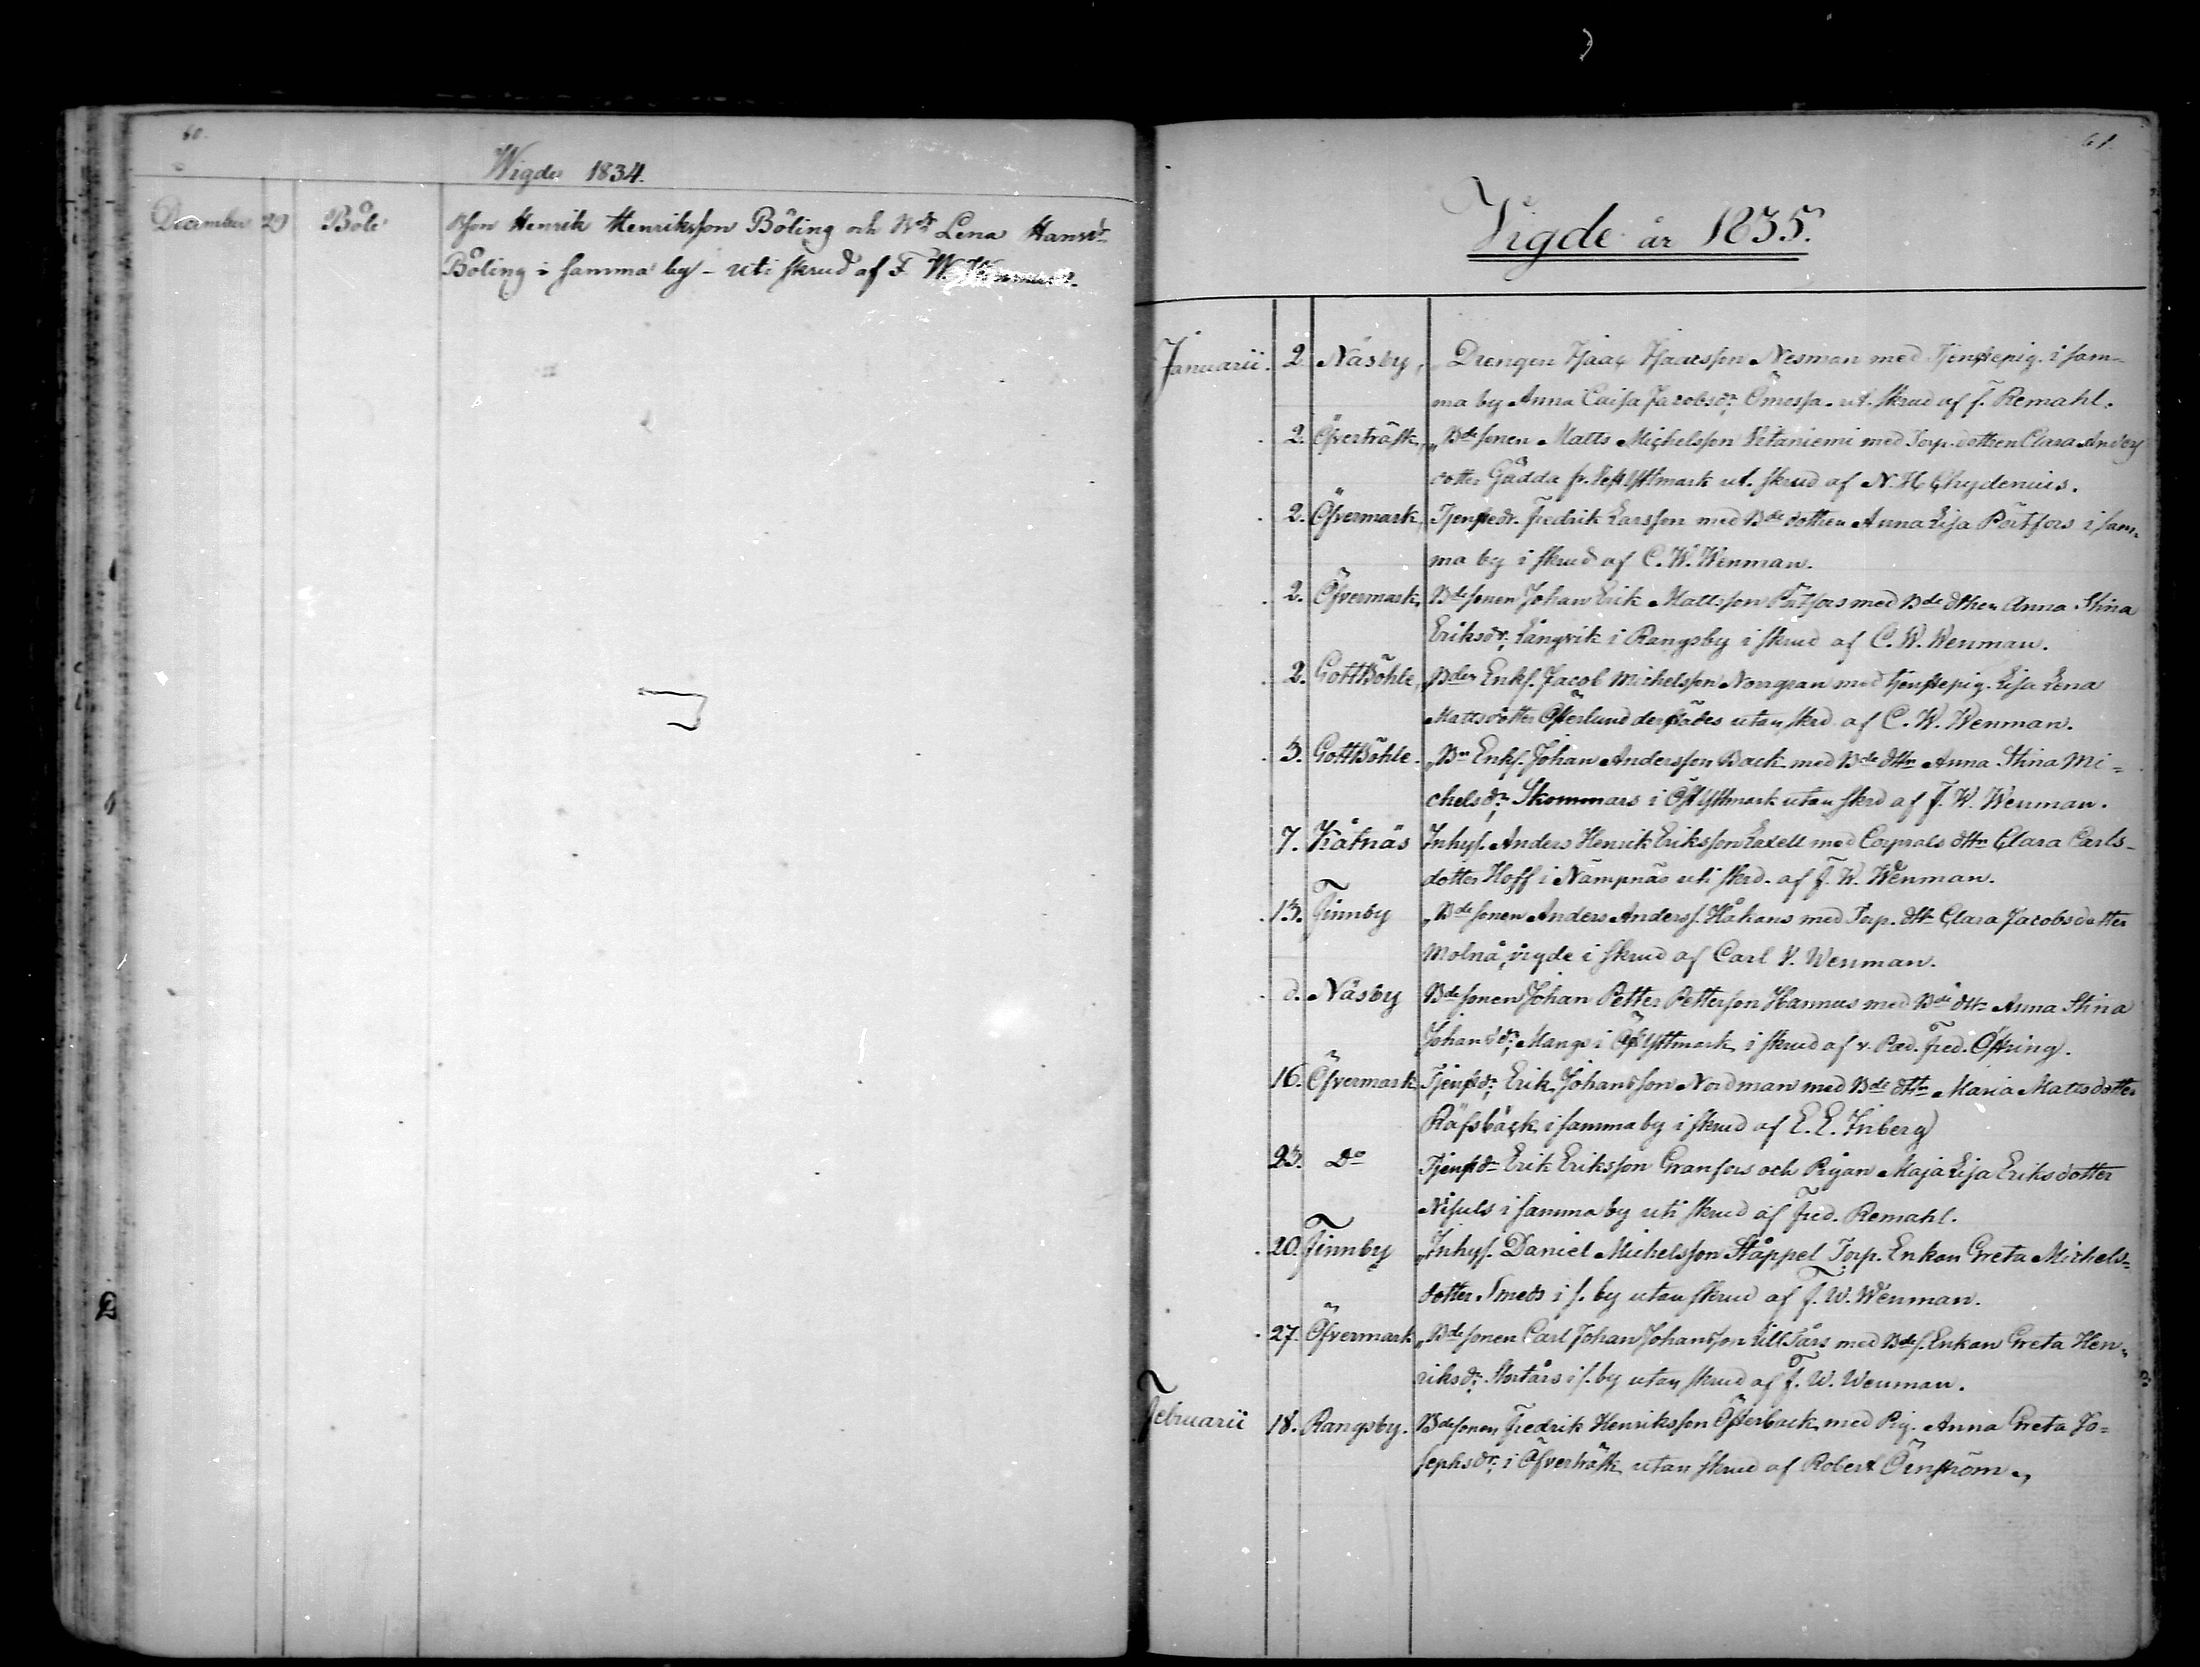 60.
Wigde 1834.
December 29 Böle Bson Henrik Henriksson Böling och Bdr Lena Hansdr
Böling i samma by - uti skrud af F W. Wenman.
61.
Vigde år 1835.
Januarii. 2. Näsby, Drengen Isaac Isaacsson Nesman med Tjenstepig. i sam-
ma by Anna Caisa Jacobsdr Ömossa. ut. skrud af f. Remahl.
2. Öfverträsk, Bdesonen Matts Michelsson Yttaniemi med Torp. dottren Clara Anders
dotter Gädda fr. West Yttmark ut. skrud af N. H Chydenius.
2. Öfvermark, Tjenstedr. Fredrik Larsson med Bde dottren Anna Lisa Pörtfors i sam-
ma by i skrud af C. W. Wenman.
2. Öfvermark, Bdesonen Johan Erik Mattsson Pörtfors med Bde dttren Anna Stina
Eriksdr. Långvik i Rangsby i skrud af C. W. Wenman.
2. Gottböhle, Bden Enkl. Jacob Michelsson Norrgran med tjenstepig. Lisa Lena
Mattsdotter Österlund derstädes utan skrd. af C. W. Wenman.
3. Gottböhle. Bn Enkl. Johan Andersson Back med Bde dttn Anna Stina Mi-
chelsdr. Skommars i Öst Yttmark utan skrd af F. W. Wenman.
7. Kåtnäs Inhys. Anders Henrik Eriksson Laxell med Corprals dttn Clara Carls-
dotter Hoff i Nämpnäs uti skrd. af F. W. Wenman.
13. Finnby Bdesonen Anders Anders. Håkans med Torp. dttr Clara Jacobsdotter
Molnå, vigde i skrud af Carl V. Wenman.
d. Näsby Bdesonen Johan Petter Petterson Hannus med Bde dttr Anna Stina
Johansdr. Mangs i Öst Yttmark i skrud af v. Pæd. Fred. Östring.
16. Öfvermark Tjenstdr. Erik Johansson Nordman med Bde dttn Maria Mattsdotter
Räfsbäck i samma by i skrud af E. E. Inberg
23. Do Tjenstdr Erik Eriksson Granfors och Pigan Maja Lisa Eriksdotter
Nisuls i samma by uti skrud af Fred. Remahl.
20. Finnby Inhys. Daniel Michelsson Ståppel Torp. Enkan Greta Michels-
dotter Smeds i s. by utan skrud af F. W. Wenman.
27. Öfvermark Bdesonen Carl Johan Johansson Lilltårs med Bdes. Enkan Greta Hen-
riksdr. Stortårs i s. by utan skrud af F. W. Wenman.
Februarii 18. Rangsby. Bdesonen Fredrik Henriksson Österback med Pig. Anna Greta Jo-
sephsdr. i Öfverträsk utan skrud af Robert Örnström.